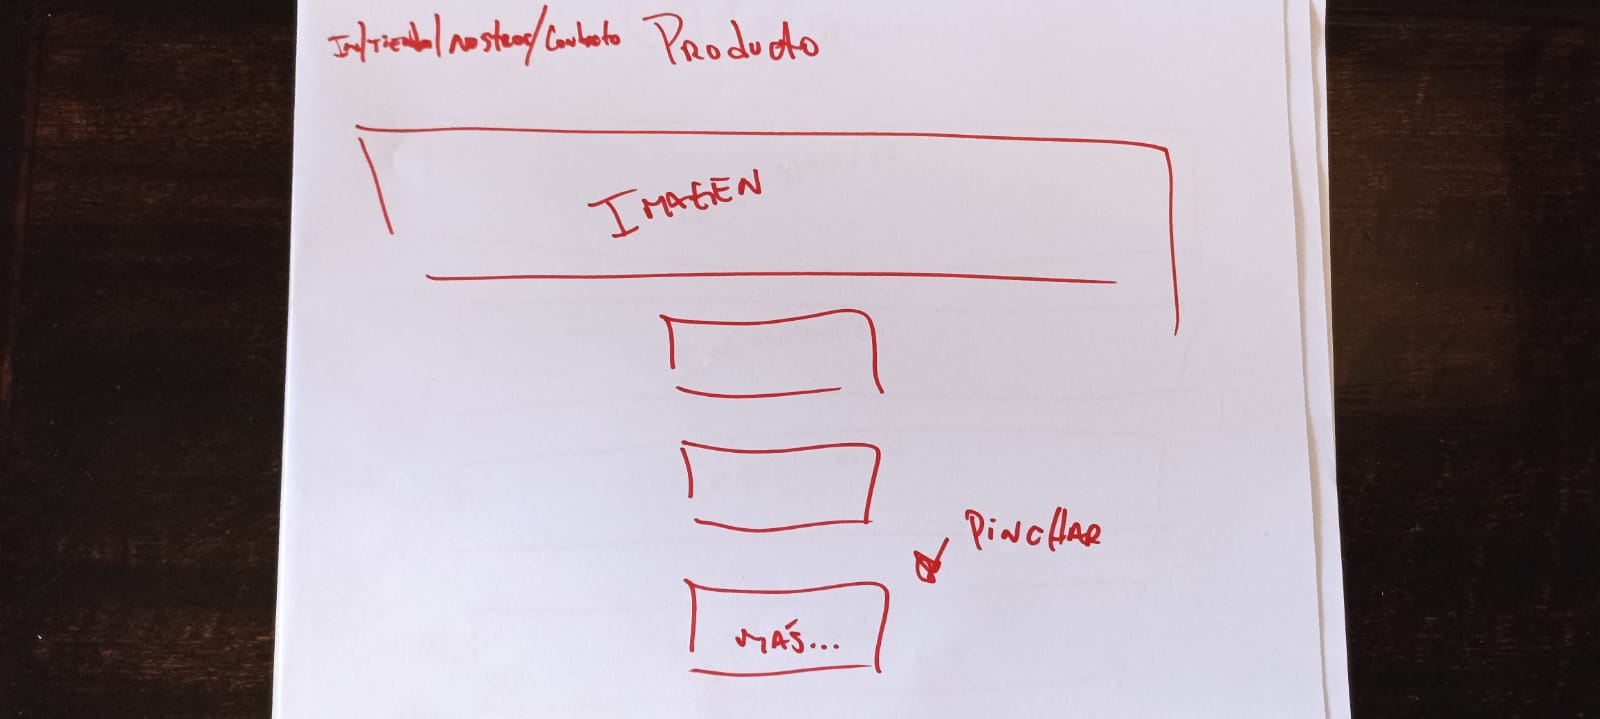 In/Tienda/Nosotros/Contacto Producto
IMAGEN
PINCHAR
MÁS...